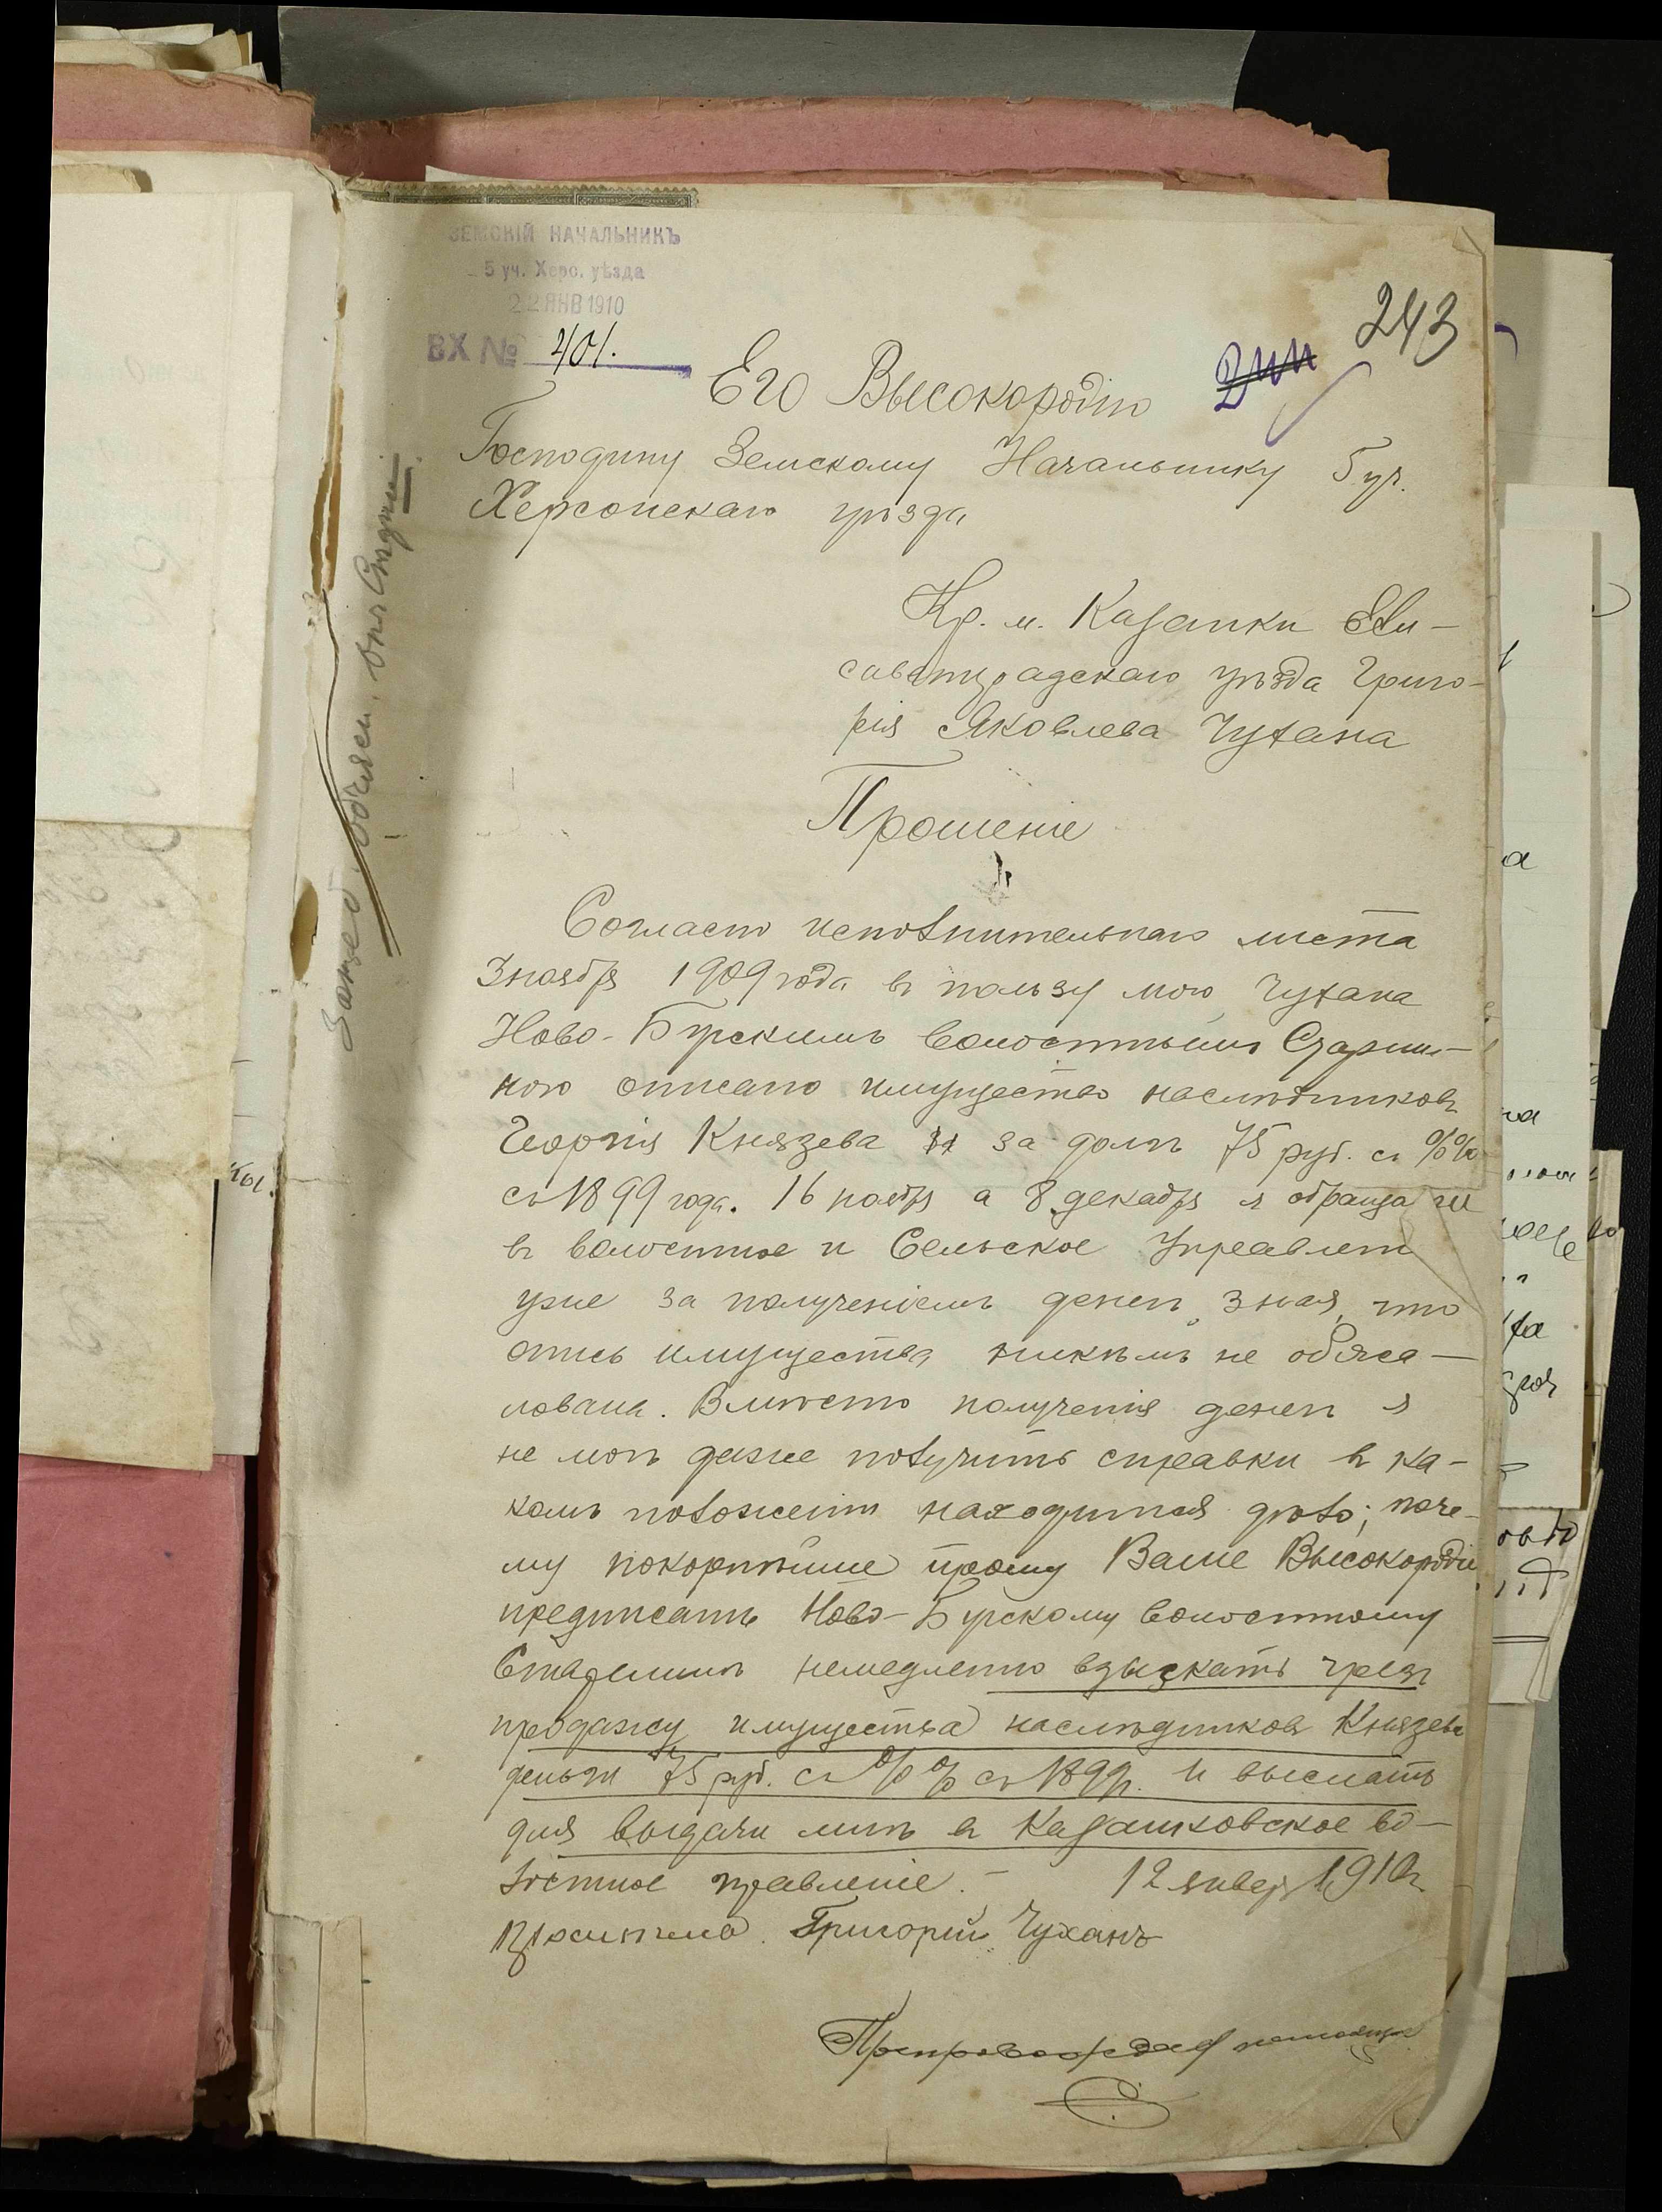 ЗЕМСКІЙ НАЧАЛЬНИКЪ
5 уч. Херс. уѣзда
22 ЯНВ 1910
ВХ № 401.
243
Его Высокородію
Господину Земскому Начальнику 5 уч.
Херсонскаго уѣзда
Кр. м. Казанки Ели-
саветградскаго уѣзда Григо-
рія Яковлева Чухана
Прошеніе
Согласно исполнительнаго листа
3 ноября 1909 года въ пользу мою Чухана
Ново-Бугскимъ Волостнымъ Старши-
ною описано имущество наслѣдниковъ
Георгія Князева за долгъ 75 руб. съ %%
съ 1899 года. 16 ноября а 8 декабря я обращался
въ Волостное и Сельское Управленія
уже за полученіемъ денегъ, зная, что
опись имущества никѣмъ не обжа-
лована. Вмѣсто полученія денегъ я
не могъ даже получить справки въ ка-
комъ положеніи находится дѣло; поче-
му покорнѣйше прошу Ваше Высокородіе
предписать Ново-Бугскому Волостному
Старшинѣ немедленно взыскать чрезъ
продажу имущества наслѣдниковъ Князева
деньги 75 руб. съ %% съ 1899 г. и выслать
для выдачи мнѣ въ Казанковское во-
лостное правленіе. - 12 января 1910 г.
Григорій Чуханъ